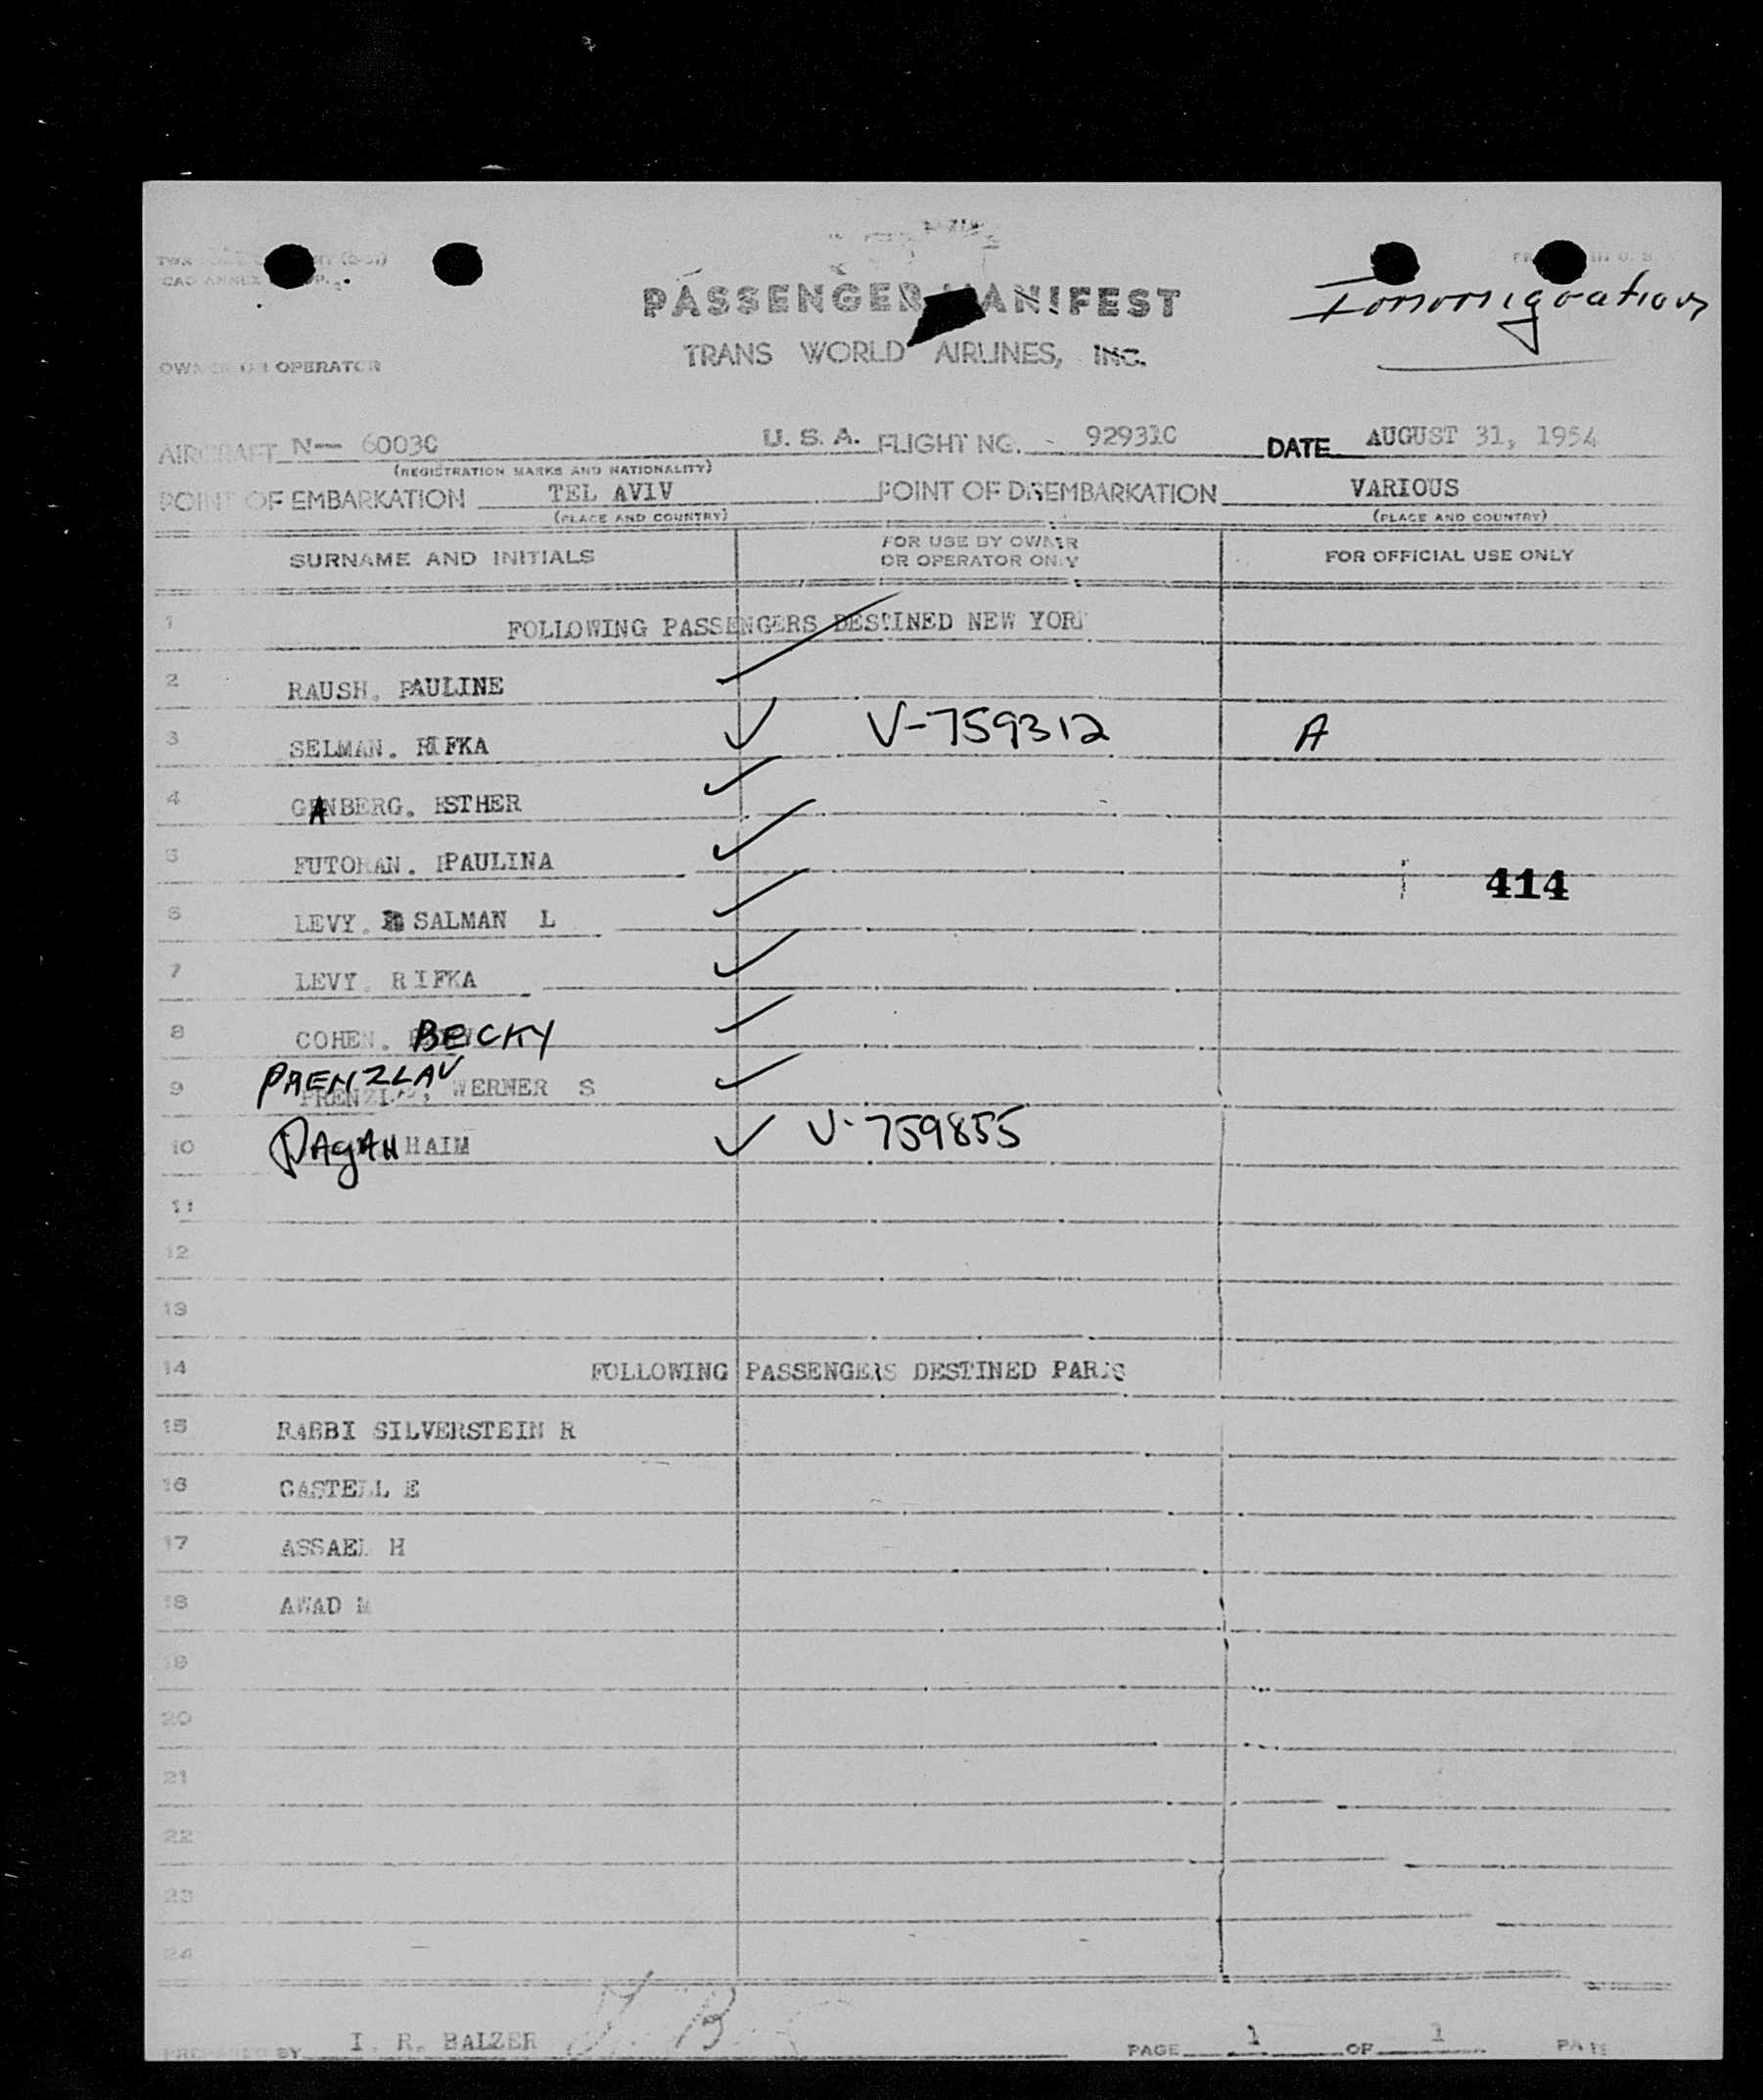 PASSENGER MANIFEST
Immigration
TRANS WORLD AIRLINES, INC.
OWNER OR OPERATOR
AIRCRAFT N— 6003C U. S. A. FLIGHT NO. - 92931C DATE AUGUST 31, 1954
(REGISTRATION MARKS AND NATIONALITY)
POINT OF EMBARKATION TEL AVIV POINT OF DISEMBARKATION VARIOUS
(PLACE AND COUNTRY) (PLACE AND COUNTRY)
SURNAME AND INITIALS FOR USE BY OWNER OR OPERATOR ONLY FOR OFFICIAL USE ONLY
1 FOLLOWING PASSENGERS DESTINED NEW YORK
2 RAUSH. PAULINE
3 SELMAN. RIFKA ✓ V-759312 A
4 GANBERG. ESTHER ✓
5 FUTORAN. PAULINA ✓
414
6 LEVY. SALMAN L ✓
7 LEVY. RIFKA ✓
8 COHEN. BECKY ✓
PRENZLAU
9 WERNER S ✓
10 DAGAN HAIM ✓ V-759855
11
12
13
14 FOLLOWING PASSENGERS DESTINED PARIS
15 RABBI SILVERSTEIN R
16 CASTELL E
17 ASSAEL H
18 AWAD M
19
20
21
22
23
24
PREPARED BY I. R. BALZER PAGE 1 OF 1